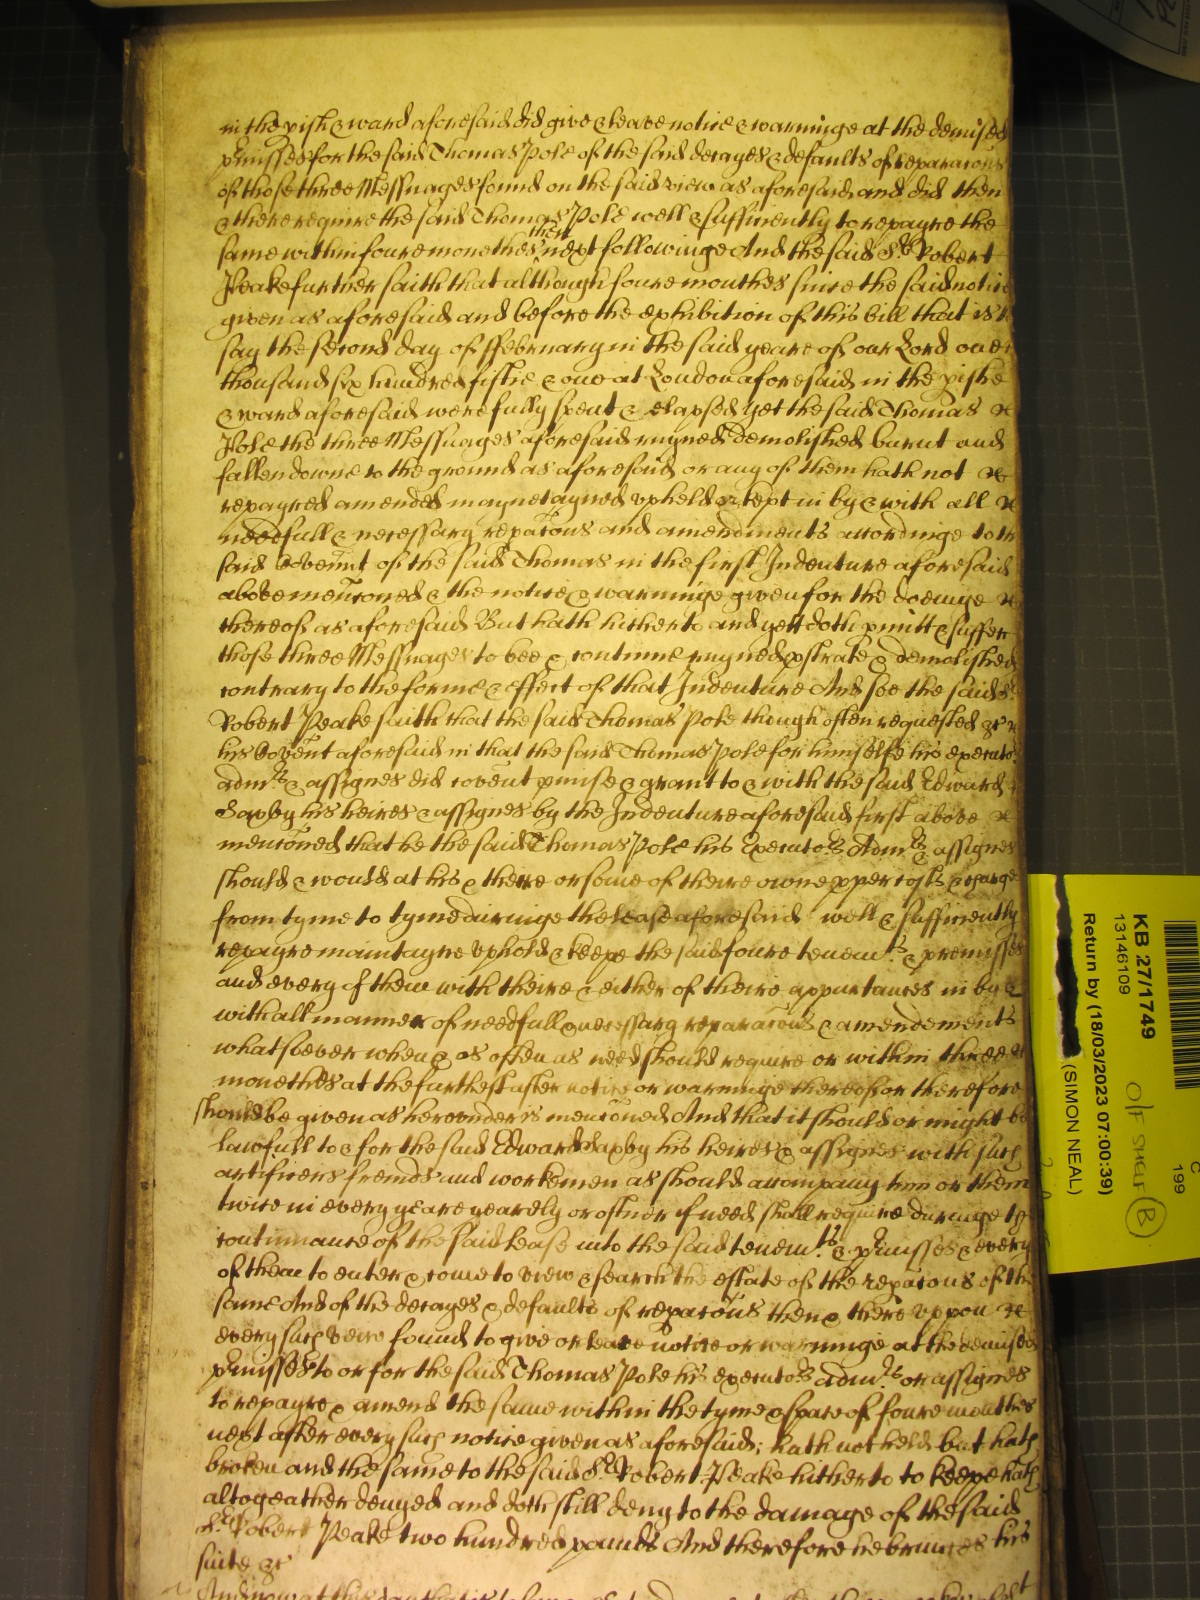 in the pish & ward aforesaid did give & leave notice & warninge at the demised
pmisses for the said Thomas Pole of the said decayes & defaults of reparacons
of those three Messuages found on the said view as aforesaid and did then
& there require the said Thomas Pole well & sufficiently to repayre the
same within foure monethes then next following And the said Sr Robert
Peake further saith that although foure monthes since the said notice
given as aforesaid and before the exhibition of this bill that is to
say the second day of ffebruary in the said yeare of our Lord one
thousand six hundred fiftie & one at London aforesaid in the pishe
& ward aforesaid were fully spent & elapsed yet the said Thomas
Pole the three Messuages aforesaid ruyned demolished burnt and
fallen downe to the ground as aforesaid or any of them hath not
repayred amended mayneteyned upheld or kept in by & with all
needfull & necessary reparacons and amendments accordinge to th
said Covennt of the said Thomas in the first Indenture aforesaid
above mencioned & the notice & warninge given for the doeinge
thereof as aforesaid But hath hitherto and yett doth pmitt & suffer
those three Messuages to bee & continue ruyned pstrate & demolished
contrary to the forme & effect of that Indenture And soe the said Sr
Robert Peake saith that the said Thomas Pole though often requested &c
his Covent aforesaid in that the said Thomas Pole for himselfe his executors
admrs & assignes did covent pmise & grant to & with the said Edward
Saxby his heires & assignes by the Indenture aforesaid first above
mencioned that he the said Thomas Pole his Executors Admrs & assignes
should & would at his & theire or some of theire owne pper costs & charge
from tyme to tyme duringe the lease aforesaid well & sufficiently
repayre maintayne uphold & keepe the said foure tenemts & premisses
and every of them with theire & either of theire appurtances in by &
with all manner of needfull & necessary reparacons & amendements
whatsoever when & as often as need should require or within three
monethes at the furthest after notice or warninge thereof or therefore
should be given as hereunder is mencioned And that it should or might be
lawfull to & for the said Edward Saxby his heires & assignes with such
artificers freinds and workemen as should accompany him or them
twice in every yeare yearely or oftner if need shall require duringe the
continuance of the said lease into the said tenemts & pmisses & every
of them to enter & come to view & search the estate of the repacons of the
same And of the decayes & defaults of repacons then & there uppon
every such veiw found to give or leave notice or warninge at the demised
pmisses to or for the said Thomas Pole his executors admrs or assignes
to repayre & amend the same within the tyme & space of foure monthes
next after every such notice given as aforesaid; hath not held but hath
broken and the same to the said Sr Robert Peake hitherto to keepe hath
altogeather denyed and doth still deny to the damage of the said
Sr Robert Peake two hundred pounds And therefore he bringes his
suite &c
KB 27/1749
13146109
Return by (18/03/2023 07:00:39)
(SIMON NEAL)
O/F SHELF B
C
199